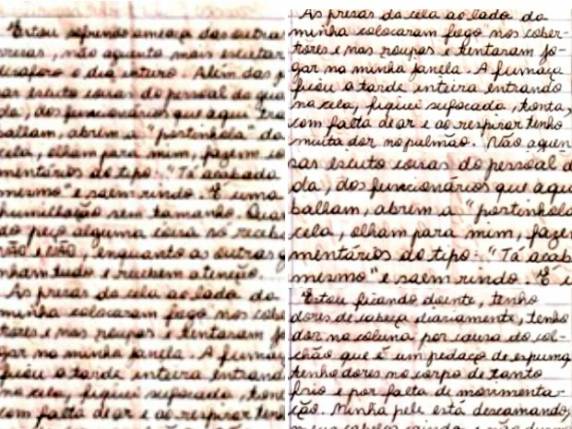 Estou sofrendo ameaça das outras
presas, não aguento mais escutar
desaforo o dia inteiro. Além das p
sas escuto coisas do pessoal da gua
da, dos funcionários que aqui tra
balham, abrem a "portinhola" da
cela, olham para mim, fazem co
mentários do tipo: "Tá acabada
mesmo" e saem rindo. É uma
humilhação sem tamanho. Quan
do peço alguma coisa só receb
não e não, enquanto as outras g
nham tudo e recebem atenção.
As presas da cela ao lado da
minha colocaram fogo nos cober
tores e nas roupas e tentaram jo
gar na minha janela. A fumaç
ficou a tarde inteira entrand
na cela, fiquei sufocada, tont
com falta de ar e ao respirar tenh
As presas da cela ao lado da
minha colocaram fogo nos cober-
tores e nas roupas e tentaram jo-
gar na minha janela. A fumaça
ficou a tarde inteira entrando
na cela, fiquei sufocada, tonta,
com falta de ar e ao respirar tenho
muita dor no pulmão. Não aguen
sas escuto coisas do pessoal d
da, dos funcionários que aqui
balham, abrem a "portinhola
cela, olham para mim, fazem
mentários do tipo: "Tá acab
mesmo" e saem rindo É u
Estou ficando doente, tenho
dores de cabeça diariamente, tenho
dor na coluna por causa do col-
chão que é um pedaço de espuma
tenho dores no corpo de tanto
frio e por falta de movimenta-
ção. Minha pele está descamando,
meus cabelos caindo e não